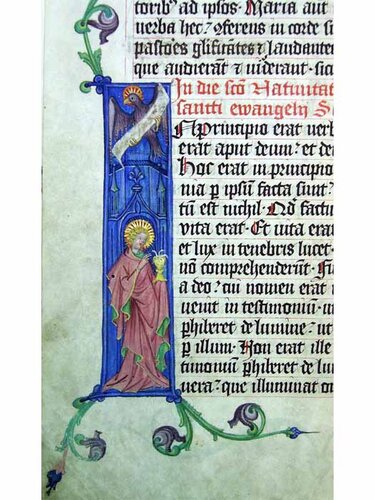 toribꝫ ad ipsos. Maria aut
verba hec: ꝯferens in corde s
pastores glificātes ⁊ laudante
que audierant ⁊ viderant. sic
In die scō Natiuitat
sancti ewangelij S
N principio erat verb
erat aput deum: et de
Hoc erat in principio
nia p ipsū facta sunt:
tū est nichil. Qd factu
vita erat. Et vita erat
et lux in tenebris lucet.
nō comprehenderūt. Fu
a deo: cui nomen erat
venit in testimoniū. ut
phiberet de lumine: ut
p illum. Non erat ille
timoniū phiberet de lu
vera: que illuminat on